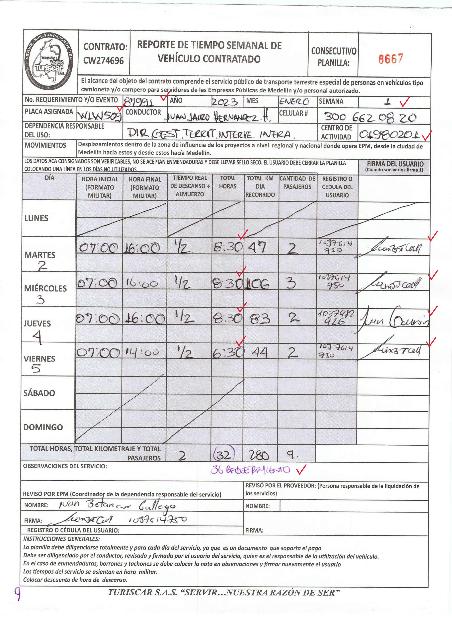 CONTRATO:
CW274696
REPORTE DE TIEMPO SEMANAL DE
VEHÍCULO CONTRATADO
CONSECUTIVO
PLANILLA:
8667
El alcance del objeto del contrato comprende el servicio público de transporte terrestre especial de personas en vehículos tipo
camioneta y/o campero para servidores de las Empresas Públicas de Medellín y/o personal autorizado.
No. REQUERIMIENTO Y/O EVENTO 87091 AÑO 2023 MES ENERO SEMANA 1
PLACA ASIGNADA WLW503 CONDUCTOR JUAN JAIRO HERNANDEZ H. CELULAR # 300 662 08 20
DEPENDENCIA RESPONSABLE
DEL USO: DIR GEST. TERRIT. INTERVE. INFRA. CENTRO DE
ACTIVIDAD
MOVIMIENTOS Desplazamientos dentro de la zona de influencia de los proyectos a nivel regional y nacional donde opera EPM, desde la ciudad de
Medellín hacia estos y desde estos hasta Medellín.
FIRMA DEL USUARIO
DÍA HORA INICIAL (FORMATO MILITAR) HORA FINAL (FORMATO MILITAR) TIEMPO REAL DE DESCANSO + ALMUERZO TOTAL HORAS TOTAL KM DIA RECORRIDO CANTIDAD DE PASAJEROS REGISTRO O CÉDULA DEL USUARIO
LUNES
MARTES 2 07:00 16:00 1/2 8:30 47 2
MIÉRCOLES 3 07:00 16:00 1/2 8:30 106 3
JUEVES 4 07:00 16:00 1/2 8:30 83 2
VIERNES 5 07:00 14:00 1/2 6:30 44 2
SÁBADO
DOMINGO
TOTAL HORAS, TOTAL KILOMETRAJE Y TOTAL
PASAJEROS 2 (32) 280 9.
OBSERVACIONES DEL SERVICIO:
REVISO POR EPM (Coordinador de la dependencia responsable del servicio)
REVISÓ POR EL PROVEEDOR: (Persona responsable de la liquidación de
los servicios)
NOMBRE: Juan Betancur Gallego
NOMBRE:
FIRMA:
FIRMA:
REGISTRO O CÉDULA DEL USUARIO:
INSTRUCCIONES GENERALES:
La planilla debe diligenciarse totalmente y para cada día del servicio, ya que es un documento que soporta el pago
Debe ser diligenciado por el conductor, revisado y firmado por el usuario del servicio, quien es el responsable de la utilización del vehículo.
En el caso de enmendaduras, borrones y tachones se debe colocar la nota en observaciones y firmar nuevamente el usuario
Los tiempos del servicio se asientan en hora militar.
Colocar descuento de hora de descanso.
TURISCAR S.A.S. "SERVIR...NUESTRA RAZÓN DE SER"
9